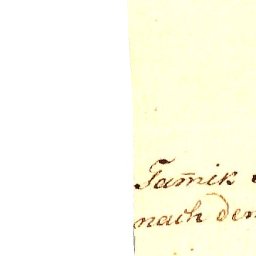 Tam̄ik
nach den